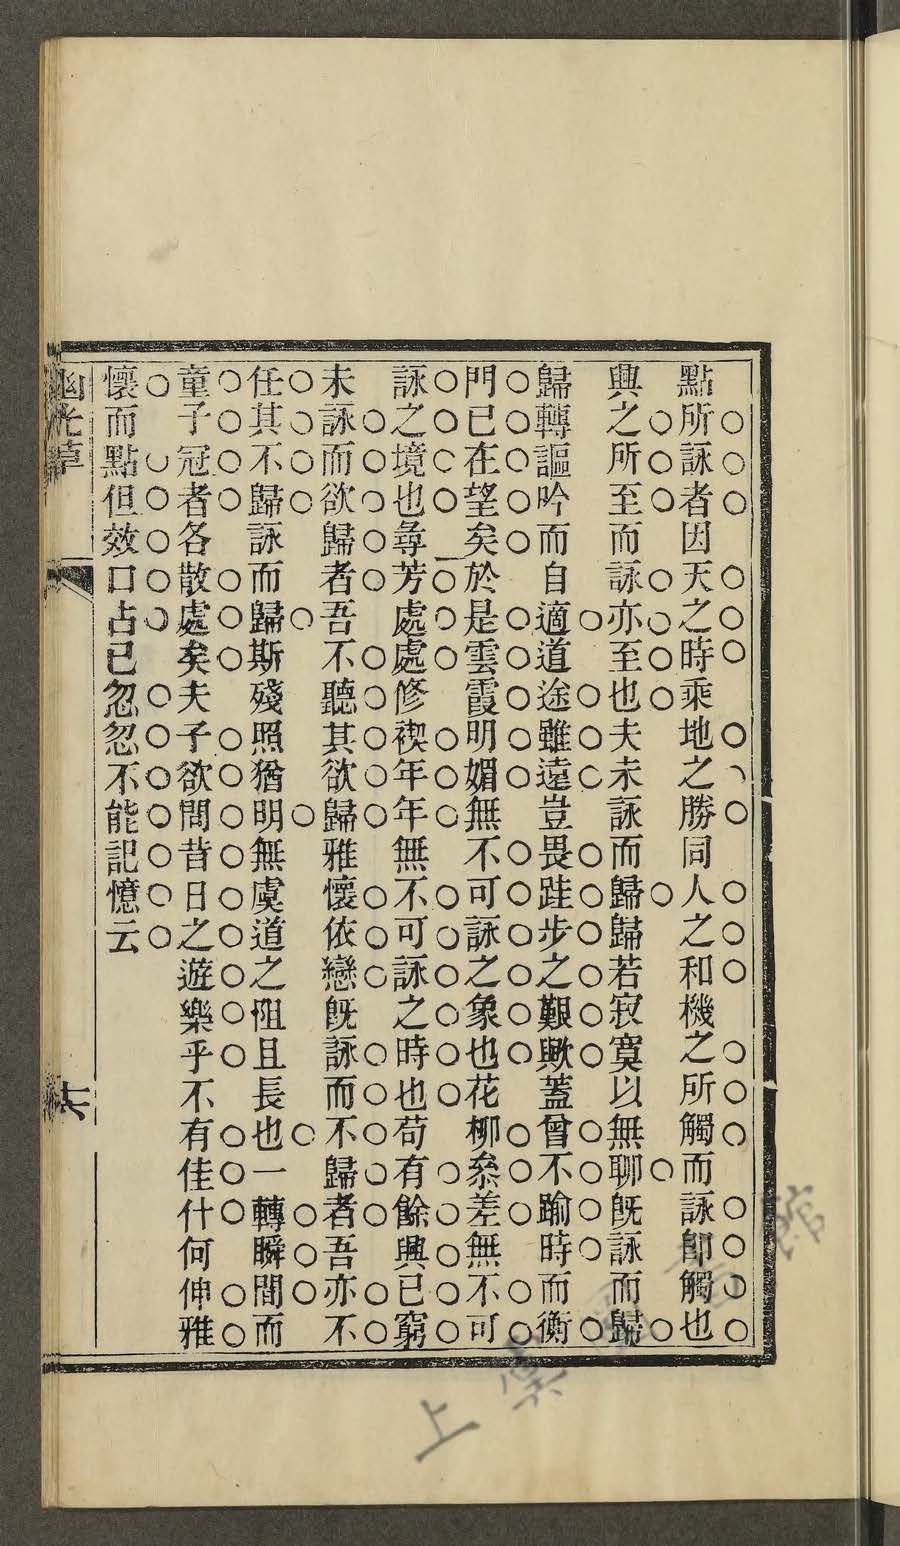 點所詠者因天之時乘地之勝同人之和機之所觸而詠卽觸也
興之所至而詠亦至也夫未詠而歸歸若寂寞以無聊旣詠而歸
歸轉謳吟而自適道途雖遠豈畏跬步之艱歟蓋曾不踰時而衡
門已在望矣於是雲霞明媚無不可詠之象也花柳叅差無不可
詠之境也尋芳處處修禊年年無不可詠之時也苟有餘興已窮
未詠而欲歸者吾不聽其欲歸雅懷依戀旣詠而不歸者吾亦不
任其不歸詠而歸斯殘照猶明無虞道之阻且長也一轉瞬間而
童子冠者各散處矣夫子欲問昔日之遊樂乎不有佳什何伸雅
懷而點但效口占已忽忽不能記憶云
六
上 圖書館